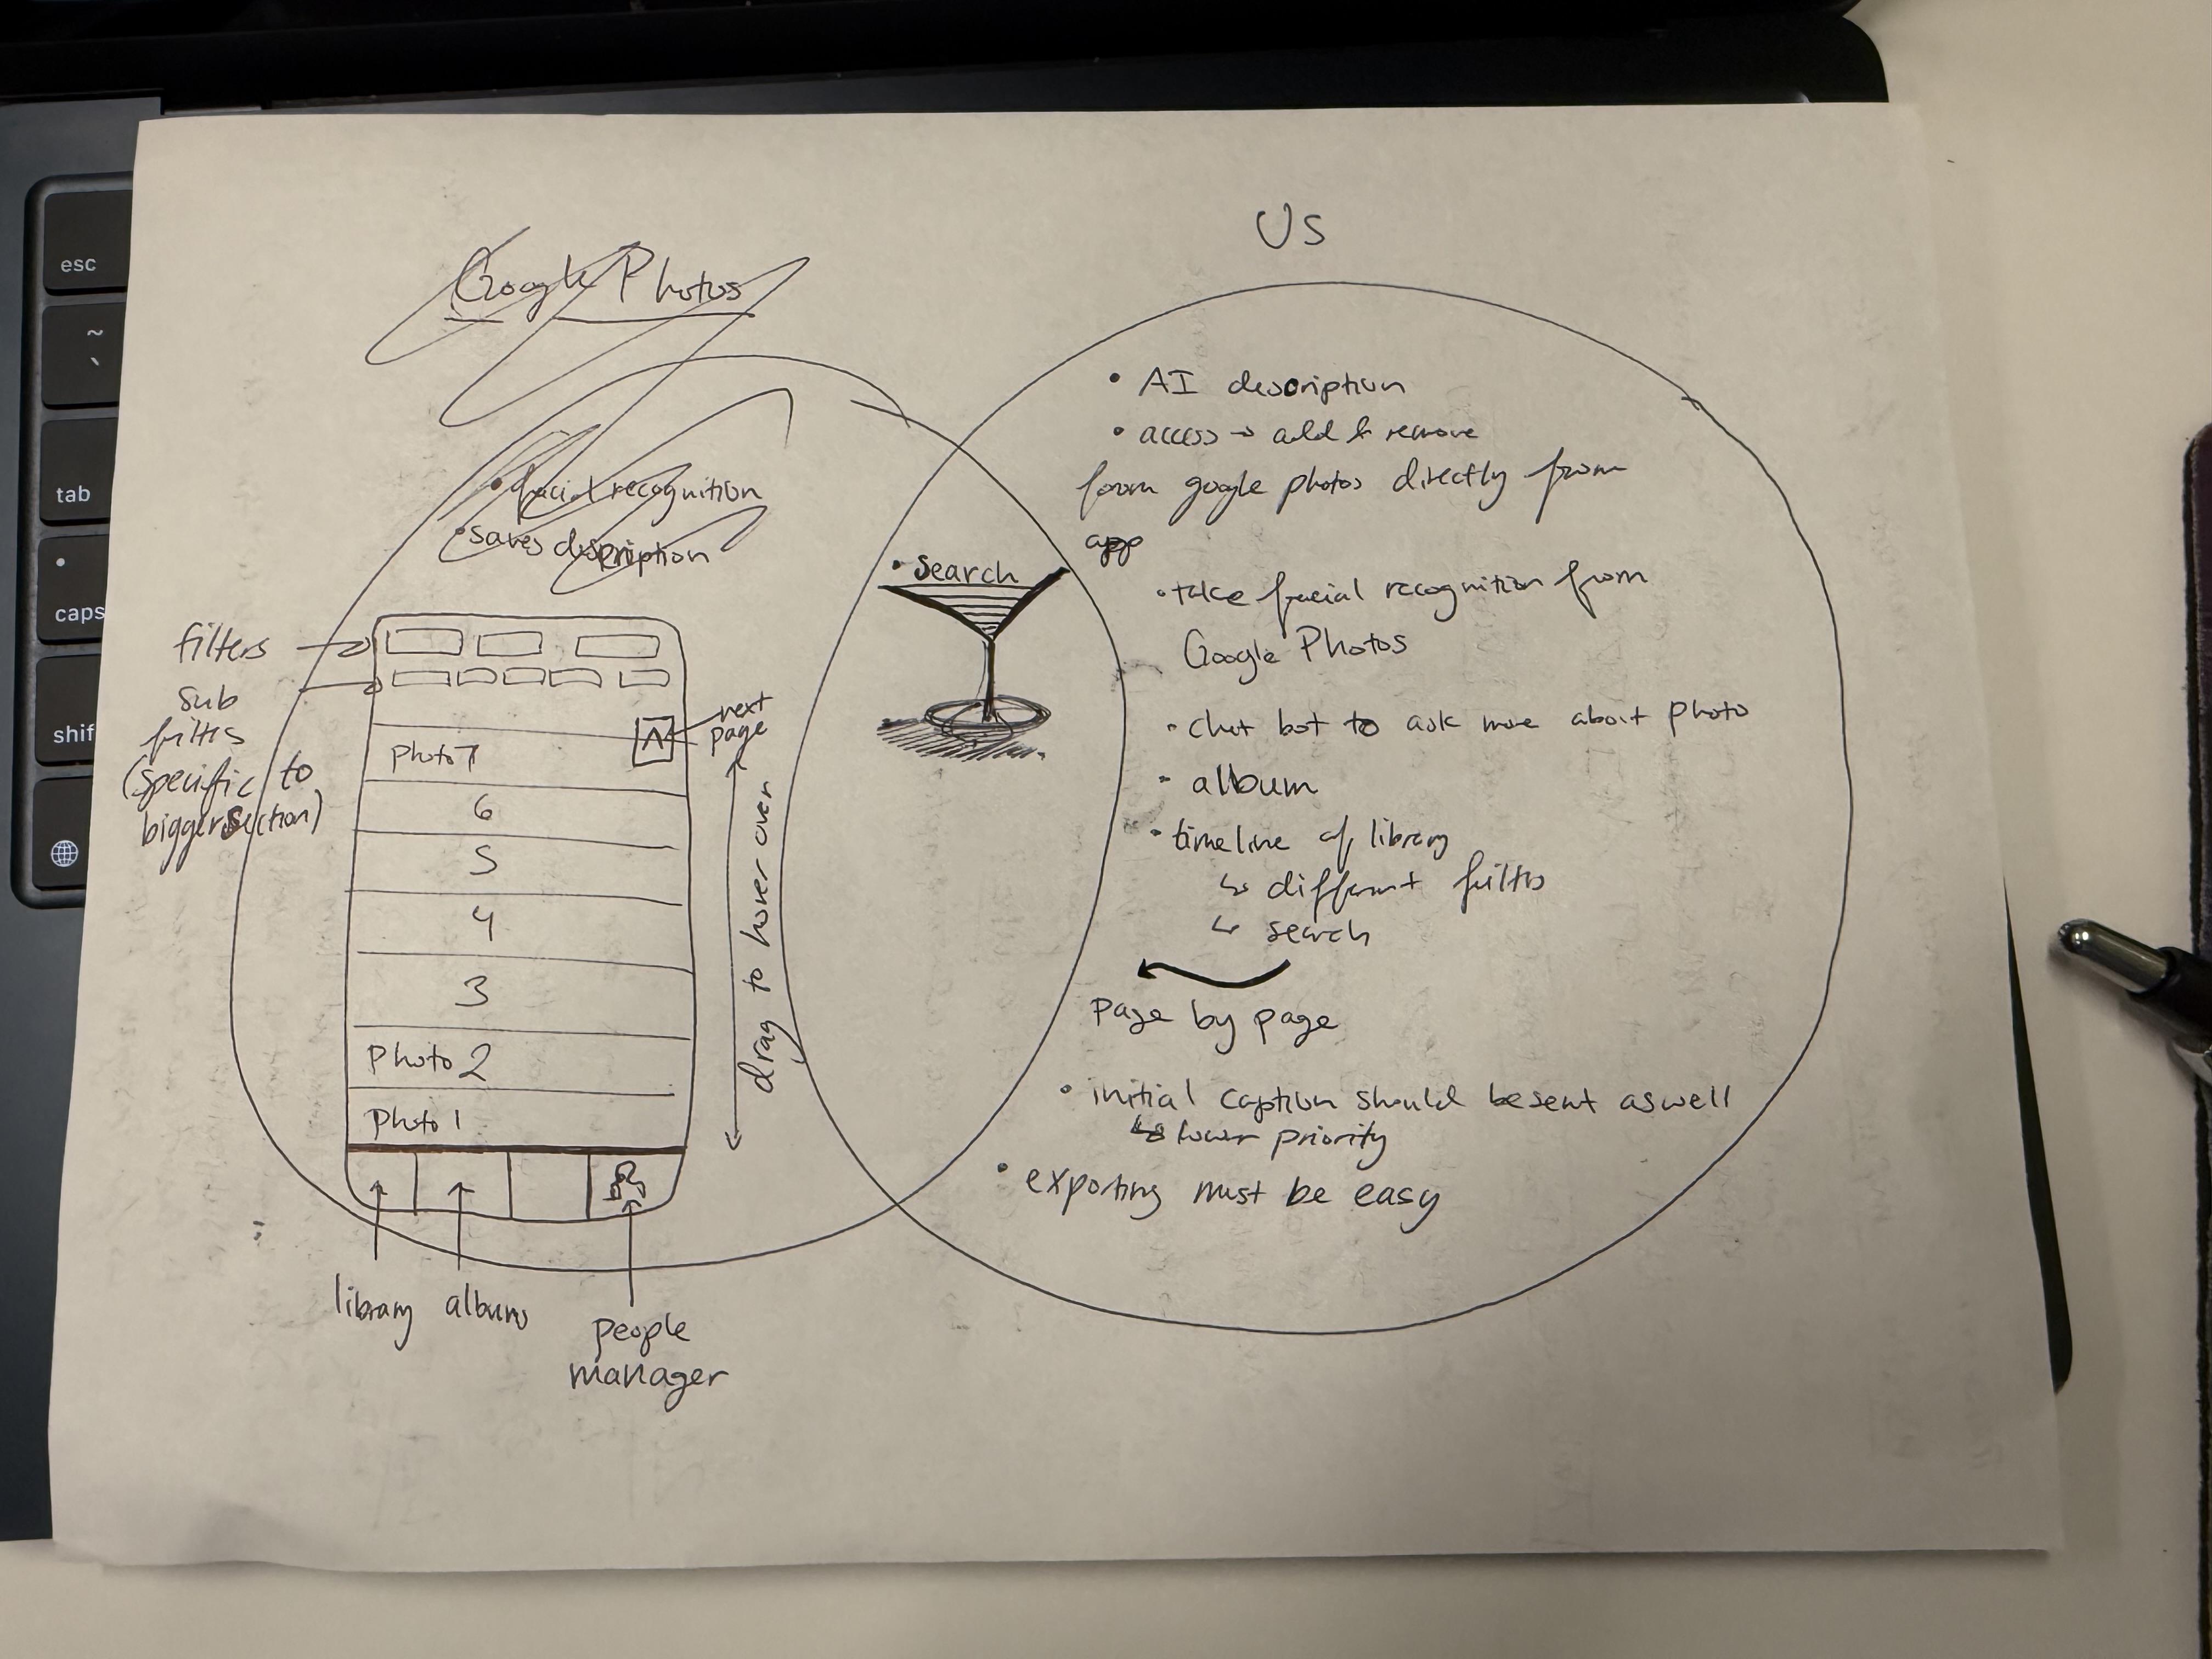 esc
~
`
tab
caps
shif
Google Photos
• facial recognition
• saves description
filters
sub
filters
(specific to
bigger section)
Photo 7
6
5
4
3
Photo 2
Photo 1
next
page
drag to hover over
library
albums
people
manager
• search
Us
• AI description
• access → add & remove
from google photos directly from
app
• take facial recognition from
Google Photos
• chat bot to ask more about photo
• album
• timeline of library
↳ different filters
↳ search
Page by page
• initial caption should be sent as well
↳ lower priority
• exporting must be easy